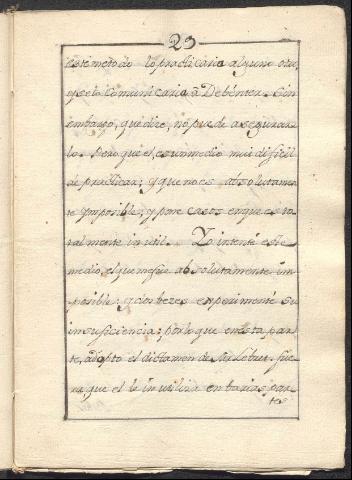 23
este metodo lo practicaria alguno otro,
y selo comunicaria à Debénter. Sin
embargo, que dice, no puede asegurar
lo. Pero que él, es un medio mui dificil
de practicar; y que no es absolutamen
te ymposible; y pone casos en que es to
talmente inutil. Yo intenté este
medio, el que me fue absolutamente im
posible; y cien bezes experimenté su
insuficiencia; por lo que en esta par
te, adopto el dictamen de Mr. Lebret. fue
ra, que el le inutiliza en barias par
tes